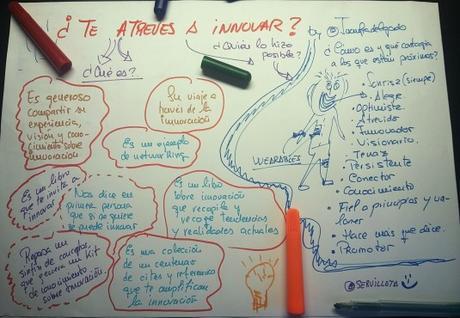 ¿TE ATREVES A INNOVAR?
¿Qué es?
¿Quién lo hizo
posible?
by
¿Cómo es y qué contagia
a los que están próximos?
Es generoso
compartir su
experiencia,
visión y cono-
cimiento sobre
innovación
Su viaje a
través de la
innovación
Es un ejemplo
de networking
Es un libro
que te invita a
innovar
Nos dice en
primera persona
que si se quiere
se puede innovar
Es un libro
sobre innovación
que recopila y
recoge tendencias
y realidades actuales
Repasa un
sinfín de conceptos,
que genera un kit
de conocimiento
sobre innovación.
Es una colección
de un centenar
de citas y referencias
que te amplifican
la innovación
WEARABLES
• Sonrisa (siempre)
• Alegre
• Optimista
• Atrevido
• Innovador
• Visionario
• Tenaz
• Persistente
• Conector
• Conocimiento
• Fiel a principios y va-
lores
• Hace más que dice.
• Promotor
@SERVILLOTA